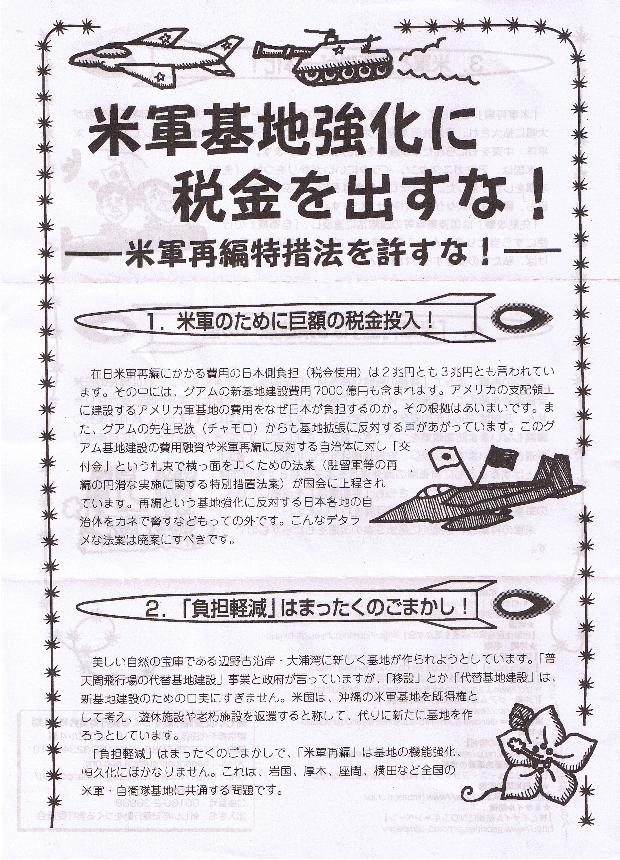 米軍基地強化に
税金を出すな！
米軍再編特措法を許すな！
1．米軍のために巨額の税金投入！
在日米軍再編にかかる費用の日本側負担（税金使用）は2兆円とも3兆円とも言われてい
ます。その中には、グアムの新基地建設費用7000億円も含まれます。アメリカの支配領土
に建設するアメリカ軍基地の費用をなぜ日本が負担するのか。その根拠はあいまいです。ま
た、グアムの先住民族（チャモロ）からも基地拡張に反対する声があがっています。このグ
アム基地建設の費用融資や米軍再編に反対する自治体に対し「交
付金」という札束で横っ面をはくための法案（駐留軍等の再
編の円滑な実施に関する特別措置法案）が国会に上程され
ています。再編という基地強化に反対する日本各地の自
治体をカネで脅すなどもっての外です。こんなデタラ
メな法案は廃案にすべきです。
2．「負担軽減」はまったくのごまかし！
美しい自然の宝庫である辺野古沿岸・大浦湾に新しく基地が作られようとしています。「普
天間飛行場の代替基地建設」事業と政府が言っていますが、「移設」とか「代替基地建設」は、
新基地建設のための口実にすぎません。米国は、沖縄の米軍基地を既得権と
して考え、遊休施設や老朽施設を返還すると称して、代りに新たに基地を作
ろうとしています。
「負担軽減」はまったくのごまかしで、「米軍再編」は基地の機能強化、
恒久化にほかなりません。これは、岩国、厚木、座間、横田など全国の
米軍・自衛隊基地に共通する問題です。